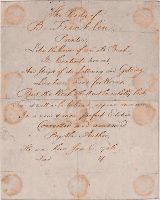 The Body of
B. Franklin
Printer,
Like the Cover of an old Book,
Its Contents torn out,
And stript of its Lettering and Gilding
Lies here, Food for Worms.
But the Work shall not be wholly lost;
For it will, as he believ'd, appear once more
In a new & more perfect Edition
Corrected and amended
By the Author.
He was born Jan. 6. 1706
Died 17